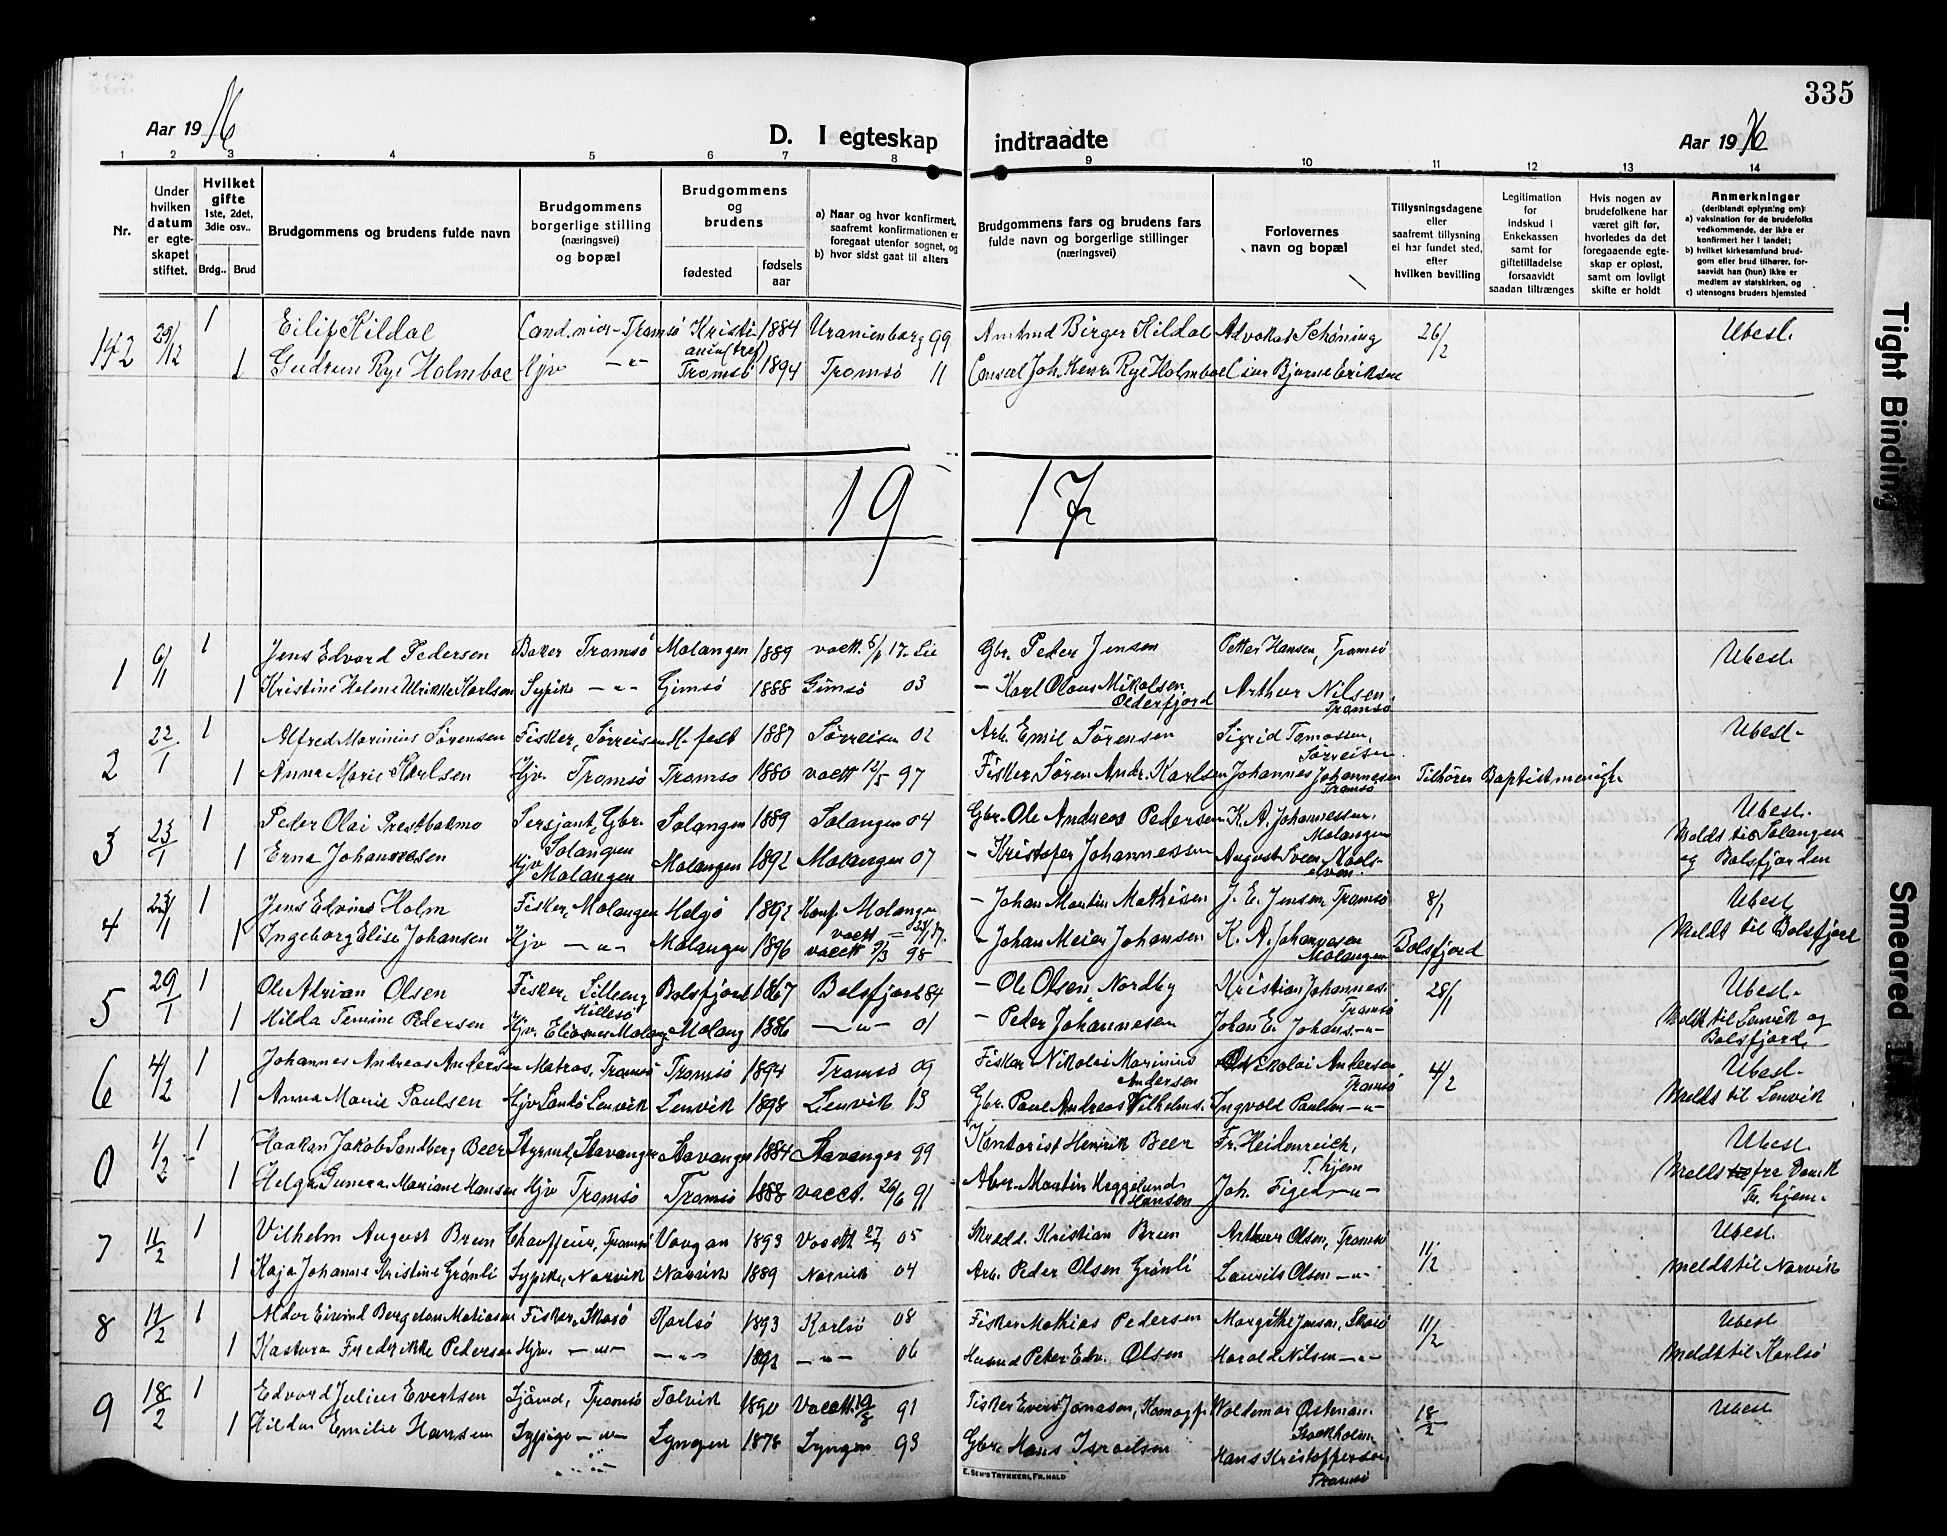 335
Aar 1916
D. I egteskap indtraadte
Aar 1916
1 2 3 4 5 6 7 8 9 10 11 12 13 14
Nr.
Under hvilken datum er egteskapet stiftet.
Hvilket gifte 1ste, 2det, 3die osv..
Brdg.. Brud
Brudgommens og brudens fulde navn
Brudgommens borgerlige stilling (næringsvei) og bopæl
Brudgommens og brudens
fødested
fødsels aar
a) Naar og hvor konfirmert, saafremt konfirmationen er foregaat utenfor sognet, og
b) hvor sidst gaat til alters
Brudgommens fars og brudens fars fulde navn og borgerlige stillinger (næringsvei)
Forlovernes navn og bopæl
Tillysningsdagene eller saafremt tillysning ei har fundet sted, efter hvilken bevilling
Legitimation for indskud i Enkekassen samt for giftetilladelse forsaavidt saadan tiltrænges
Hvis nogen av brudefolkene har været gift før, hvorledes da det foregaaende egteskap er opløst, samt om lovligt skifte er holdt
Anmerkninger (deriblandt oplysning om:
a) vaksination for de brudefolks vedkommende, der ikke er konfirmert her i landet;
b) hvilket kirkesamfund brudgom eller brud tilhører, forsaavidt han (hun) ikke er medlem av statskirken, og
c) utensogns bruders hjemsted
142 29/12 1 Eilif Kildal Cand. Tromsø Kristiania 1884 Uranienborg 99 Amtmd Birger Kildal Advokat Schøning 26/2 Ubesl.
1 Gudrun Rye Holmboe Hjv -"- Tromsø 1894 Tromsø 11 Consul Joh. Henr. Rye Holmboe Bjarne Eriksen
19 17
1 6/1 1 Jens Edvard Pedersen Baker Tromsø Malangen 1889 vacc. 5/1 17 Gbr. Peder Jensen Petter Hansen, Tromsø Ubesl.
1 Kristine Helene Ulrikke Karlsen Sypike -"- Gimsø 1888 Gimsø 03 - Karl Olaus Mikalsen, Olderfjord Arthur Nilsen, Tromsø
2 22/1 1 Alfred Marinius Sørensen Fisker, Sørreisen 1887 Sørreisa 02 Arb. Emil Sørensen Sigrid Tomassen, Sørreisen Ubesl.
1 Anna Marie Karlsen Hjv. Tromsø Tromsø 1880 vacc. 12/5 97 Fisker Søren Andr. Karlsen Johannes Johannesen Tromsø Tilhører Baptistmenigh.
3 23/1 1 Peder Olai Prestbakmo Sersjant, Gbr. Salangen Salangen 1889 Salangen 04 Gbr. Ole Andreas Pedersen K. A. Johannessen, Malangen Ubesl.
1 Erna Johannesen Hjv Malangen Malangen 1892 Malangen 07 - Kristofer Johannessen August Svens. Maalselven Meldt til Salangen og Balsfjorden
4 23/1 1 Jens Edvins Holm Fisker, Malangen Helgø 1892 Konf. Malangen - Johan Martin Mathisen J. E. Jensen, Tromsø 8/1 Ubesl.
1 Ingeborg Elise Johansen Hjv -"- Malangen 1896 vacc. 9/3 98 - Johan Meier Johansen K. A. Johannesen Malangen Balsfjord Meldt til Balsfjord
5 29/1 1 Ole Adrian Olsen Fisker, Lilleeng Hillesø Balsfjord 1867 Balsfjord 84 - Ole Olsen Nordby Kristian Johannes. Tromsø 28/1 Ubesl.
1 Hilda Temine Pedersen Hjv. Malang. Malang 1886 -"- 01 - Peder Johannesen Johan Er. Johans. -"- Meldt til Lenvik og Balsfjord
6 4/2 1 Johannes Andreas Andersen Matros, Tromsø Tromsø 1894 Tromsø 09 Fisker Nikolai Marinius Andersen Nikolai Andersen Tromsø 4/2 Ubesl.
1 Anna Marie Paulsen Hjv Lenvik Lenvik 1898 Lenvik 13 Gbr. Paul Andreas Vilhelms. Ingvald Paulsen -"- Meldt til Lenvik
0 4/2 1 Haakon Jakob Sandberg Beer Styrmd, Stavanger Stavanger 1884 Stavanger 99 Kontorist Henrik Beer Fr. Heidenreich, T.hjem Ubesl.
1 Helga Gunera Mariane Hansen Hjv Tromsø Tromsø 1888 vacct. 26/6 91 Arb. Martin Heggelund Hansen Joh. -"- Meldt fra
7 11/2 1 Vilhelm August Brun Chauffeur, Tromsø Vaagan 1893 Vacct. 05 Skredd. Kristian Brun Arthur Olsen, Tromsø 11/2 Ubesl.
1 Kaja Johanne Kristine Grønli Sypike, Narvik Narvik 1889 Narvik 04 Arb. Peder Olsen Grønli Laurits Olsen -"- Meldt til Narvik
8 11/2 1 Aldor Eivind Bergeton Matiasen Fisker, Skarsø Karlsø 1893 Karlsø 08 Fisker Mathias Pedersen Margithe Jensen, 11/2 Ubesl
1 Kastora Fredrikke Pedersen Hjv. -"- -"- 1892 -"- 06 Husmd Peter Edv. Olsen Harald Nilsen -"- Meldt til Karlsø
9 18/2 1 Edvard Julius Evertsen Sjømd, Tromsø Talvik 1890 Vacct. 19/8 91 Fisker Evert Jonasen, Komagfj. Waldemar Østman. Stockholm 18/2 Ubesl
1 Hilda Emilie Hansen Sypige -"- Lyngen 1878 Lyngen 93 Gbr. Hans Israelsen Hans Kristoffersen Tromsø
E. SEM'S TRYKKERI, FR.HALD
Tight Binding
Smeared